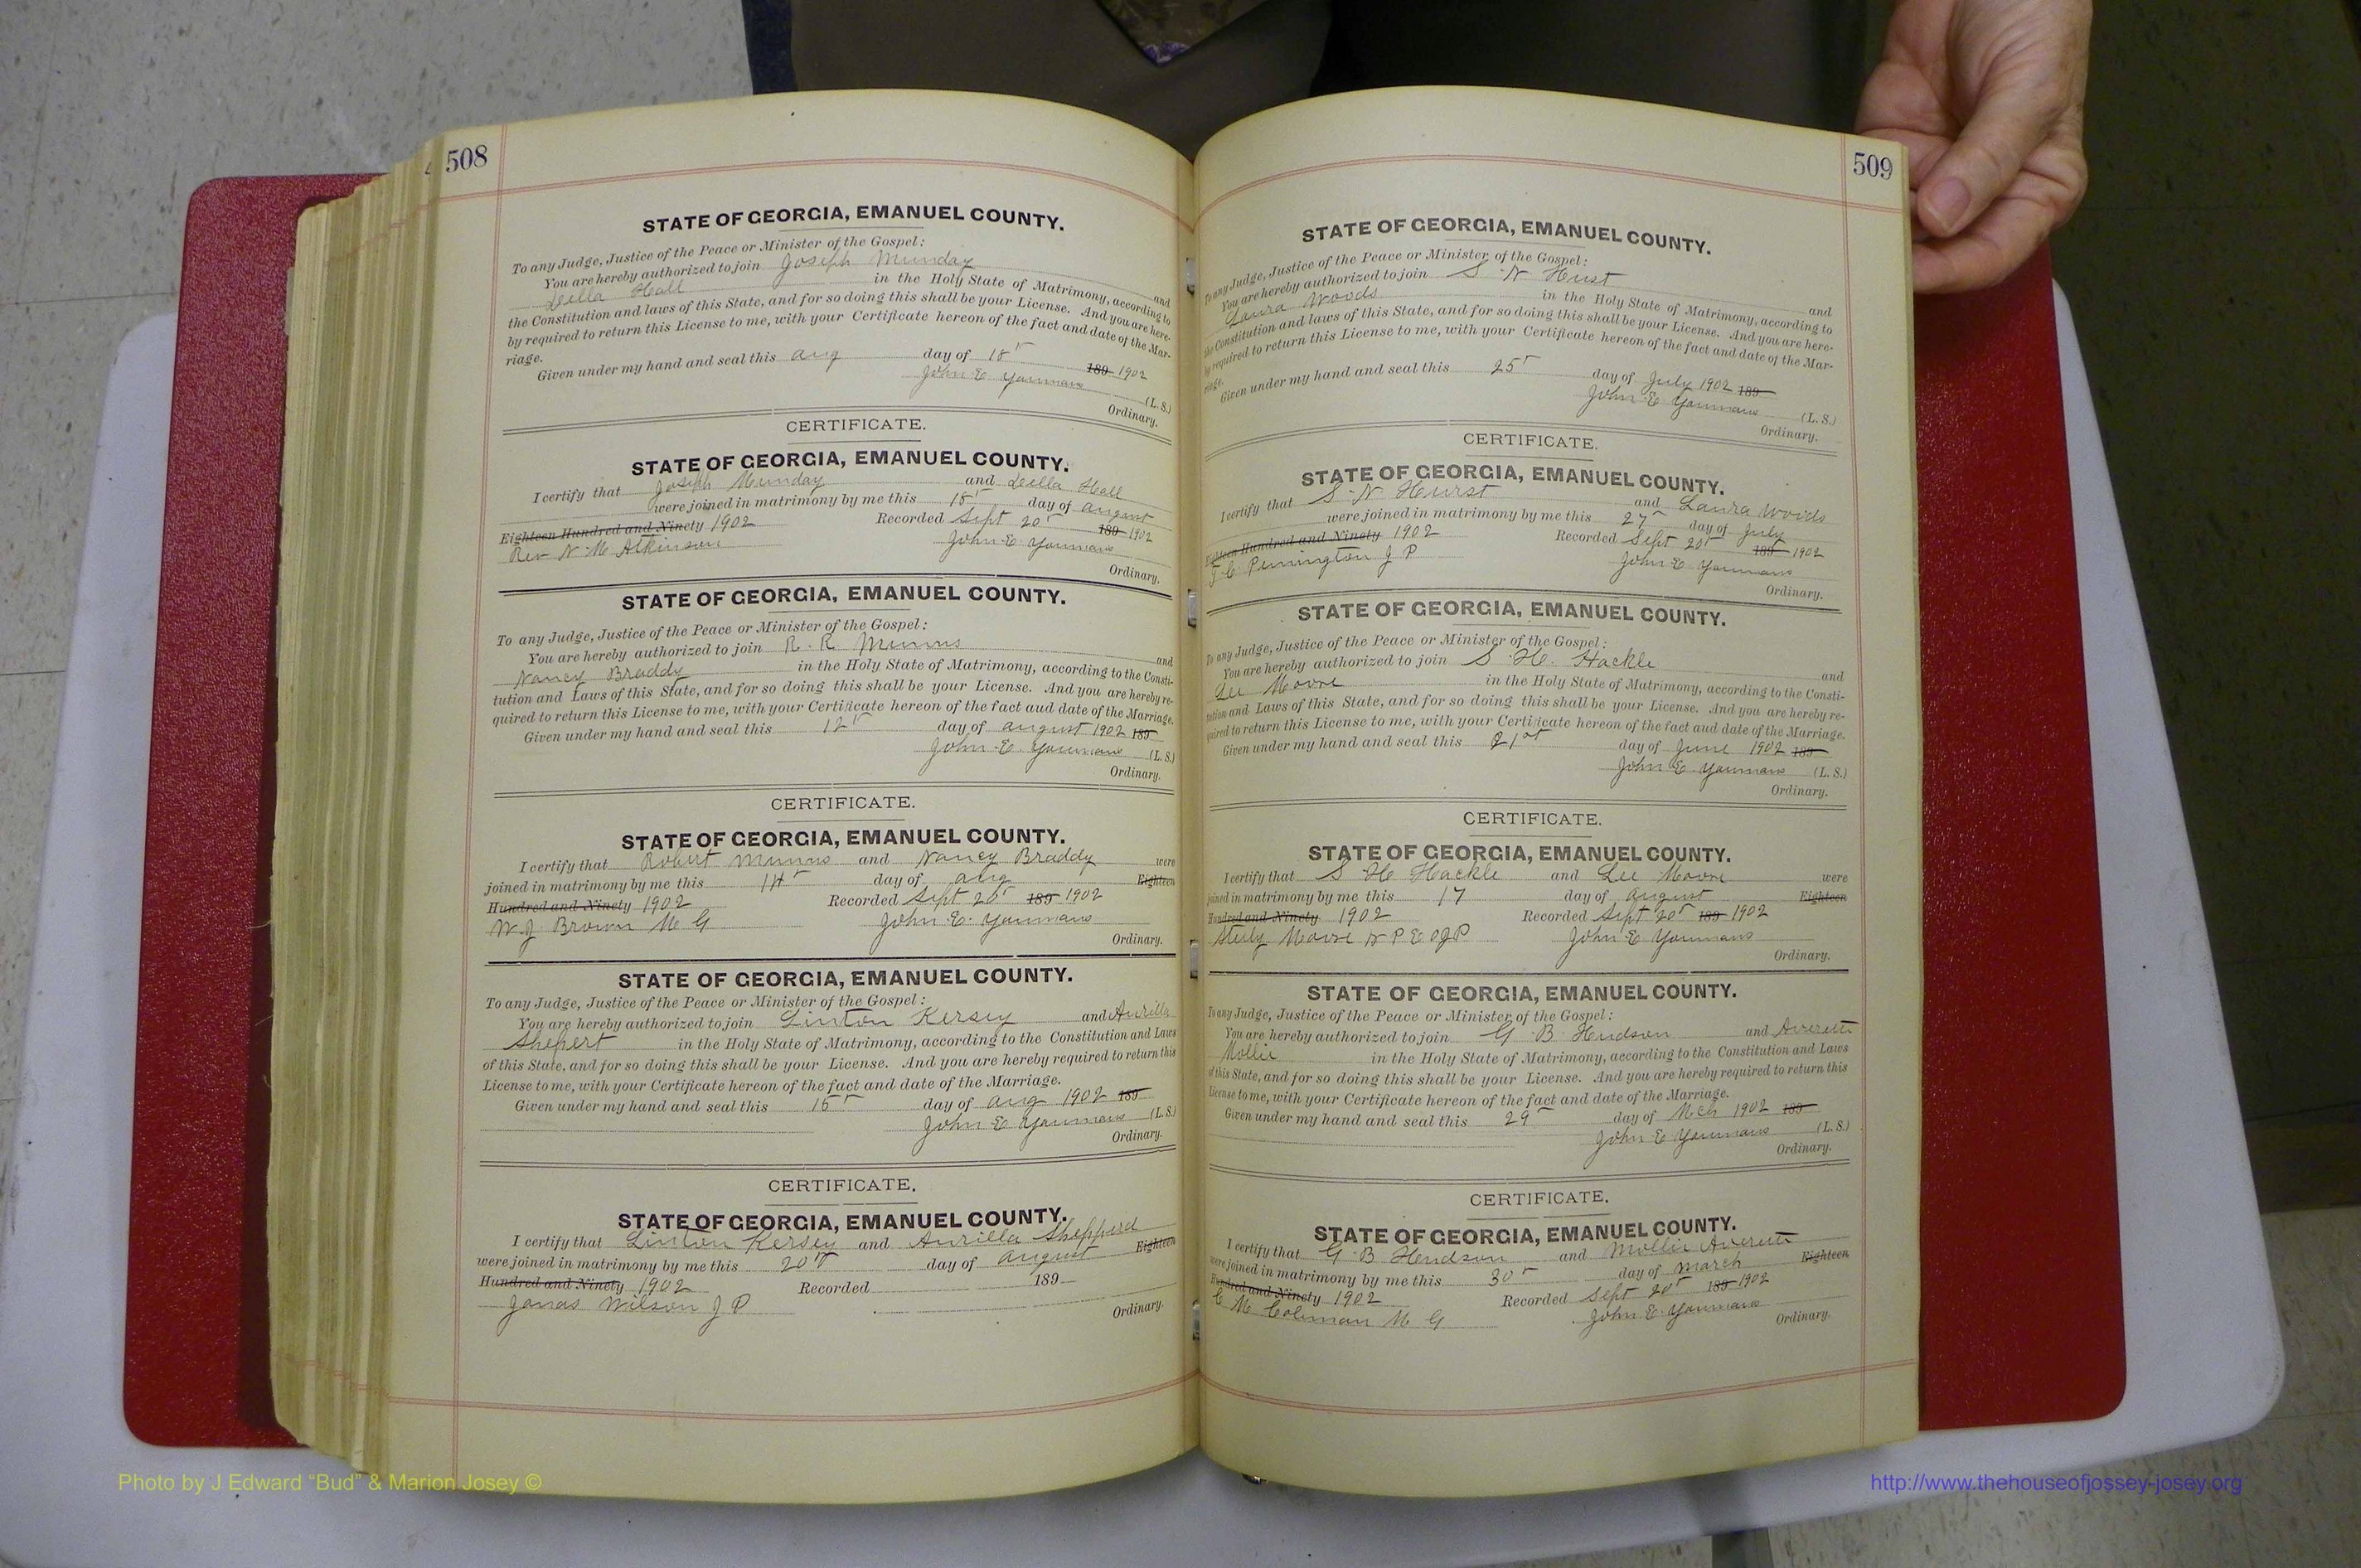 508
STATE OF GEORGIA, EMANUEL COUNTY.
To any Judge, Justice of the Peace or Minister of the Gospel:
You are hereby authorized to join Joseph Munday and
Leilla Hall in the Holy State of Matrimony, according to
the Constitution and laws of this State, and for so doing this shall be your License. And you are here-
by required to return this License to me, with your Certificate hereon of the fact and date of the Mar-
riage.
Given under my hand and seal this Aug day of 18" 189 1902
John E Youmans (L. S.)
Ordinary.
CERTIFICATE.
STATE OF GEORGIA, EMANUEL COUNTY.
I certify that Joseph Munday and Leilla Hall
were joined in matrimony by me this 18" day of August
Eighteen Hundred and Ninety 1902 Recorded Sept 20" 189 1902
Rev N. M. Atkinson John E Youmans
Ordinary.
STATE OF GEORGIA, EMANUEL COUNTY.
To any Judge, Justice of the Peace or Minister of the Gospel:
You are hereby authorized to join R. R. Munns and
Nancy Braddy in the Holy State of Matrimony, according to the Consti-
tution and Laws of this State, and for so doing this shall be your License. And you are hereby re-
quired to return this License to me, with your Certificate hereon of the fact aud date of the Marriage.
Given under my hand and seal this 12" day of August 1902 189
John E. Youmans (L. S.)
Ordinary.
CERTIFICATE.
STATE OF GEORGIA, EMANUEL COUNTY.
I certify that Robert Munns and Nancy Braddy were
joined in matrimony by me this 14" day of Aug Eighteen
Hundred and Ninety 1902 Recorded Sept 20" 189 1902
W. J. Brown M G John E. Youmans
Ordinary.
STATE OF GEORGIA, EMANUEL COUNTY.
To any Judge, Justice of the Peace or Minister of the Gospel:
You are hereby authorized to join Linton Kersey and Aurilla
Shepert in the Holy State of Matrimony, according to the Constitution and Laws
of this State, and for so doing this shall be your License. And you are hereby required to return this
License to me, with your Certificate hereon of the fact and date of the Marriage.
Given under my hand and seal this day of Aug 1902 189
John E Youmans (L.S.)
Ordinary.
CERTIFICATE.
STATE OF GEORGIA, EMANUEL COUNTY.
I certify that Linton Kersey and Aurilla Shepperd
were joined in matrimony by me this 20" day of August Eighteen
Hundred and Ninety 1902 Recorded 189
Wilson J P
Ordinary.
509
STATE OF GEORGIA, EMANUEL COUNTY.
To any Judge, Justice of the Peace or Minister of the Gospel:
You are hereby authorized to join S. N Hurst and
Laura Woods in the Holy State of Matrimony, according to
the Constitution and laws of this State, and for so doing this shall be your License. And you are here-
by required to return this License to me, with your Certificate hereon of the fact and date of the Mar-
riage.
Given under my hand and seal this 25" day of July 1902 189
John E Youmans (L. S.)
Ordinary.
CERTIFICATE.
STATE OF GEORGIA, EMANUEL COUNTY.
I certify that S. N Hurst and Laura Woods
were joined in matrimony by me this 27" day of July
Eighteen Hundred and Ninety 1902 Recorded Sept 20" 189 1902
Pennington J P John E Youmans
Ordinary.
STATE OF GEORGIA, EMANUEL COUNTY.
To any Judge, Justice of the Peace or Minister of the Gospel:
You are hereby authorized to join S. H. Hackle and
Lee Moore in the Holy State of Matrimony, according to the Consti-
tution and Laws of this State, and for so doing this shall be your License. And you are hereby re-
quired to return this License to me, with your Certificate hereon of the fact aud date of the Marriage.
Given under my hand and seal this 21st day of June 1902 189
John E. Youmans (L. S.)
Ordinary.
CERTIFICATE.
STATE OF GEORGIA, EMANUEL COUNTY.
I certify that S H Hackle and Lee Moore were
joined in matrimony by me this 17 day of August Eighteen
Hundred and Ninety 1902 Recorded Sept 20" 189 1902
Moore John E Youmans
Ordinary.
STATE OF GEORGIA, EMANUEL COUNTY.
To any Judge, Justice of the Peace or Minister of the Gospel:
You are hereby authorized to join G. B. Hudson and Averett
Mollie in the Holy State of Matrimony, according to the Constitution and Laws
of this State, and for so doing this shall be your License. And you are hereby required to return this
License to me, with your Certificate hereon of the fact and date of the Marriage.
Given under my hand and seal this 29" day of Mch 1902 189
John E Youmans (L.S.)
Ordinary.
CERTIFICATE.
STATE OF GEORGIA, EMANUEL COUNTY.
I certify that G. B Hendson and Mollie Averett
were joined in matrimony by me this 30" day of March Eighteen
Hundred and Ninety 1902 Recorded Sept 20" 189 1902
C M Coleman M G John E. Youmans
Ordinary.
Photo by J Edward “Bud” & Marion Josey ©
http://www.thehouseofjossey-josey.org